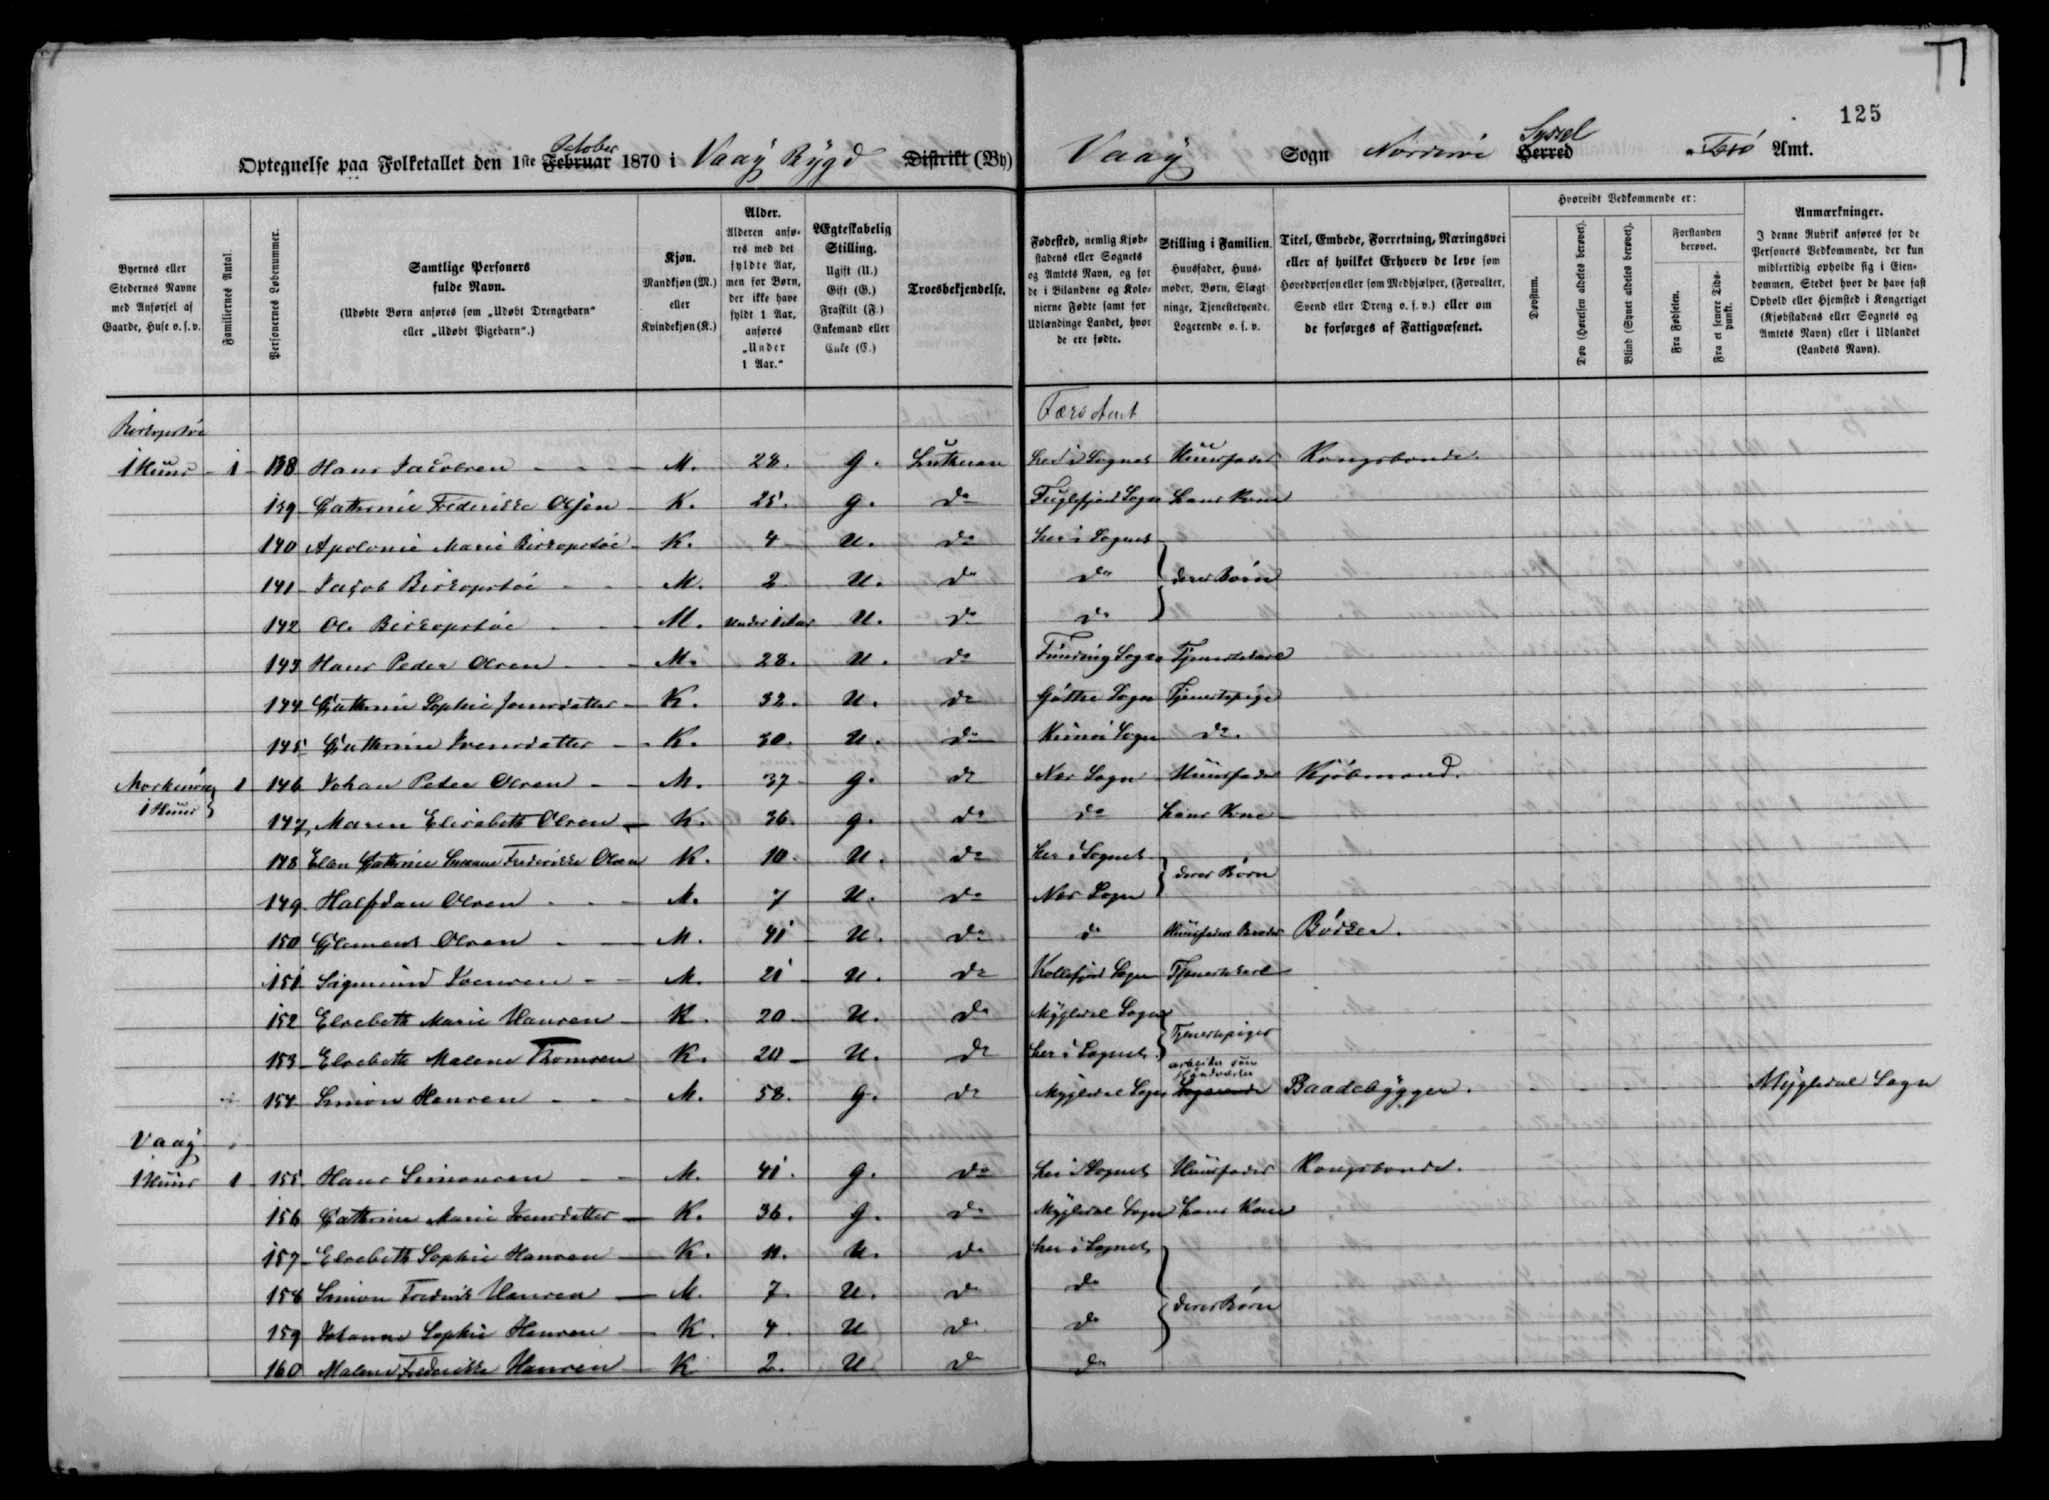 125
Optegnelse paa Folketallet den 1ste Februar October 1870 i Vaag Bygd Distrikt (By) Vaag Sogn Norderøe Herred Syssel Færø Amt.
Byernes eller Stedernes Navne med Anførsel af Gaarde, Huse o. s. v.
Familiernes Antal.
Personernes Løbenummer.
Samtlige Personers fulde Navn.
(Udøbte Børn anføres som „Udøbt Drengebarn" eller „Udøbt Pigebarn".)
Kjøn.
Mandkjøn (M.) eller Kvindekjøn (K.)
Alder.
Alderen anføres med det fyldte Aar, men for Børn, der ikke have fyldt 1 Aar, anføres „Under 1 Aar."
Ægteskabelig Stilling.
Ugift (U.) Gift (G.) Fraskilt (F.) Enkemand eller Enke (E.)
Troesbekjendelse.
Fødested, nemlig Kjøbstadens eller Sognets og Amtets Navn, og for de i Bilandene og Kolonierne Fødte samt for Udlændinge Landet, hvor de ere fødte.
Stilling i Familien.
Huusfader, Huusmoder, Børn, Slægtninge, Tjenestetyende, Logerende o. s. v.
Titel, Embede, Forretning, Næringsvei eller af hvilket Erhverv de leve som Hovedperson eller som Medhjælper, (Forvalter, Svend eller Dreng o. s. v.) eller om de forsørges af Fattigvæsenet.
Hvorvidt Vedkommende er:
Døvstum.
Døv (Hørelsen aldeles berøvet).
Blind (Synet aldeles berøvet).
Forstanden berøvet.
Fra Fødselen.
Fra et senere Tidspunkt.
Anmærkninger.
I denne Rubrik anføres for de Personers Vedkommende, der kun midlertidig opholde sig i Eiendommen, Stedet hvor de have fast Ophold eller Hjemsted i Kongeriget (Kjøbstadens eller Sognets og Amtets Navn) eller i Udlandet (Landets Navn).
Færø Amt
Biskopstøe
1 Huus 1 138 Hans Jacobsen M. 28. g. Lutheran her i Sognet Huusfader Kongsbonde.
139 Cathrine Frederikke Olsen K. 25. g. do Fuglefjord Sogn hans Kone
140 Apolonie Marie Biskopstøe K. 4 U. do her i Sognet
141 Jacob Biskopstøe M. 2 U. do do deres Børn
142 Ole Biskopstøe M. Under 1 Aar U. do do
143 Hans Peder Olsen M. 28. U. do Funding Sogn Tjenestekarl
144 Cathrine Sophie Joensdatter K. 32. U. do Gøthe Sogn Tjenestepige
145 Cathrine Joensdatter K. 30. U. do Kunøe Sogn do.
1 146 Johan Peter Olsen M. 37 g. do Nes Sogn Huusfader Kjøbmand.
1 Huus 147 Maren Elisabeth Olsen K. 36. g. do do hans Kone
148 Elen Cathrine Susanne Frederikke Olsen K. 10. U. do her i Sognet deres Børn
149 Halfdan Olsen M. 7 U. do Nes Sogn
150 Clemens Olsen M. 41 U. do do Huusfaders Broder Bødker.
151 Sigmund Joensen M. 21 U. do Kollefjord Sogn Tjenestekarl
152 Elsebeth Marie Hansen K. 20 U. do Mygledal Sogn Tjenestepiger
153 Elsebeth Malene Thomsen K. 20 U. do her i Sognet
154 Simon Hansen M. 58. g. do Mygledal Sogn Logerende Baadebygger. Mygledal Sogn
Vaag
1 Huus 1 155 Hans Simonsen M. 41. g. do her i Sognet Huusfader Kongsbonde.
156 Cathrine Marie Joensdatter K. 36. g. do Mygledal Sogn hans Kone
157 Elsebeth Sophie Hansen K. 11. U. do her i Sognet
158 Simon Frederik Hansen M. 7. U. do do deres Børn
159 Johanne Sophie Hansen K. 4. U do do
160 Malene Frederikke Hansen K 2. U do do